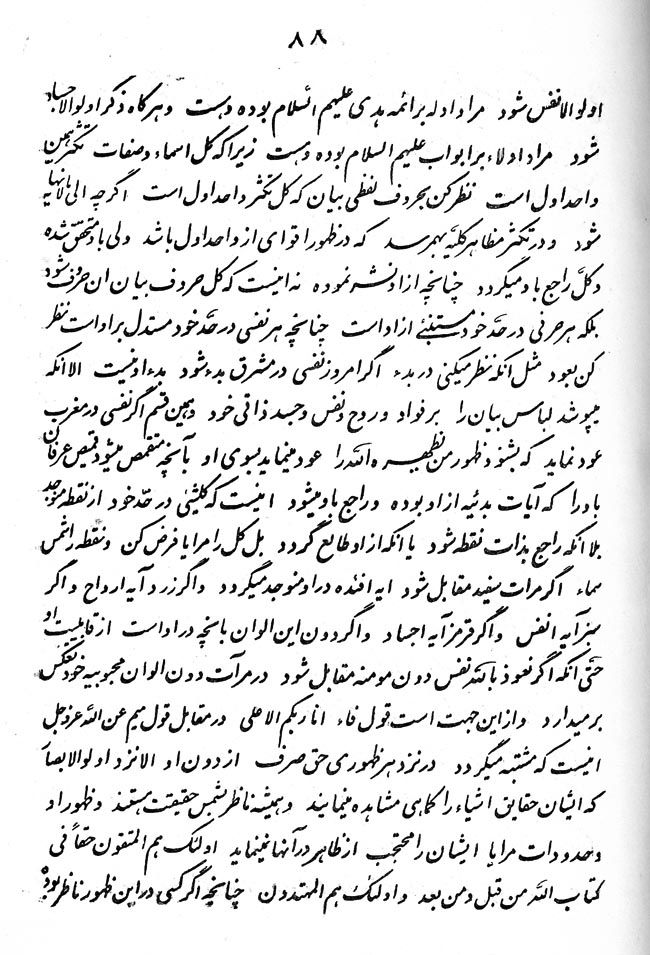 ۸۸
اولو الانفس شود مراد ادله بر ائمه هدی علیهم السلام بوده وهست وهرگاه ذکر اولو الاجساد
شود مراد ادلاء بر ابواب علیهم السلام بوده وهست زیرا که کل اسماء وصفات تکثر همین
واحد اول است نظر کن بحروف لفظی بیان که کل تکثر واحد اول است اگرچه الی مالانهایه
شود ودر تکثر مظاهر کلیّه بهم رسد که در ظهور اقوای از واحد اول باشد ولی باو متحقق شده
وکلّ راجع باو میگردد چنانچه از او نشر نموده نه اینست که کل حروف بیان ان حروف شود
بلکه هر حرفی در حدّ خود مستنبئ از او است چنانچه هر نفسی در حدّ خود مستدل بر او است نظر
کن بعود مثل انکه نظر میکنی در بدء اگر امروز نفسی در مشرق بدء شود بدء او نیست الا انکه
میپوشد لباس بیان را بر فواد وروح ونفس وجسد ذاتی خود وبهمین قسم اگر نفسی در مغرب
عود نماید که بشنود ظهور من یظهره الله را عود مینماید بسوی او بآنچه متقمص میشود قمیص عرفان
باو را که آیات بدئیه از او بوده وراجع باو میشود اینست که کلشیئ در حدّ خود از نقطه موجد
بلا انکه راجع بذات نقطه شود یا انکه از او طالع گردد بل کل را مرایا فرض کن ونقطه را شمس
سماء اگر مرات سفید مقابل شود ایه افئده در او متوجد میگردد واگر زرد آیه ارواح واگر
سبز آیه انفس واگر قرمز آیه اجساد واگر دون این الوان بانچه در او است از قابلیت او
حتّی انکه اگر نعوذ بالله نفس دون مومنه مقابل شود در مرآت دون الوان محبوبیه خود تعکس
بر میدارد واز این جهت است قول فاء انا ربکم الاعلی در مقابل قول میم عن الله عزوجل
اینست که مشتبه میگردد در نزد هر ظهوری حق صرف از دون او الا نزد اولو الابصار
که ایشان حقایق اشیاء را کماهی مشاهده مینمایند وهمیشه ناظر بشمس حقیقت هستند وظهور او
وحدودات مرایا ایشان را محتجب از ظاهر در آنها نمینماید اولئک هم المتقون حقاً فی
کتاب الله من قبل ومن بعد واولئک هم المهتدون چنانچه اگر کسی در این ظهور ناظر بوده